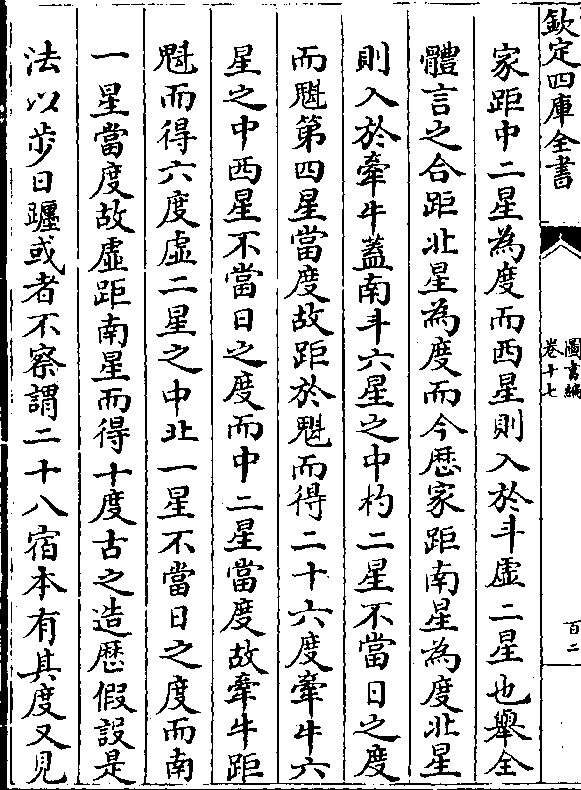 欽定四庫全書
圖書編
卷十七
百二
家距中二星為度而西星則入於斗虛二星也舉全
體言之合距北星為度而今厯家距南星為度北星
則入於牽牛蓋南斗六星之中杓二星不當日之度
而魁第四星當度故距於魁而得二十六度牽牛六
星之中西星不當日之度而中二星當度故牽牛距
魁而得六度虛二星之中北一星不當日之度而南
一星當度故虛距南星而得十度古之造厯假設是
法以步日躔或者不察謂二十八宿本有其度又見